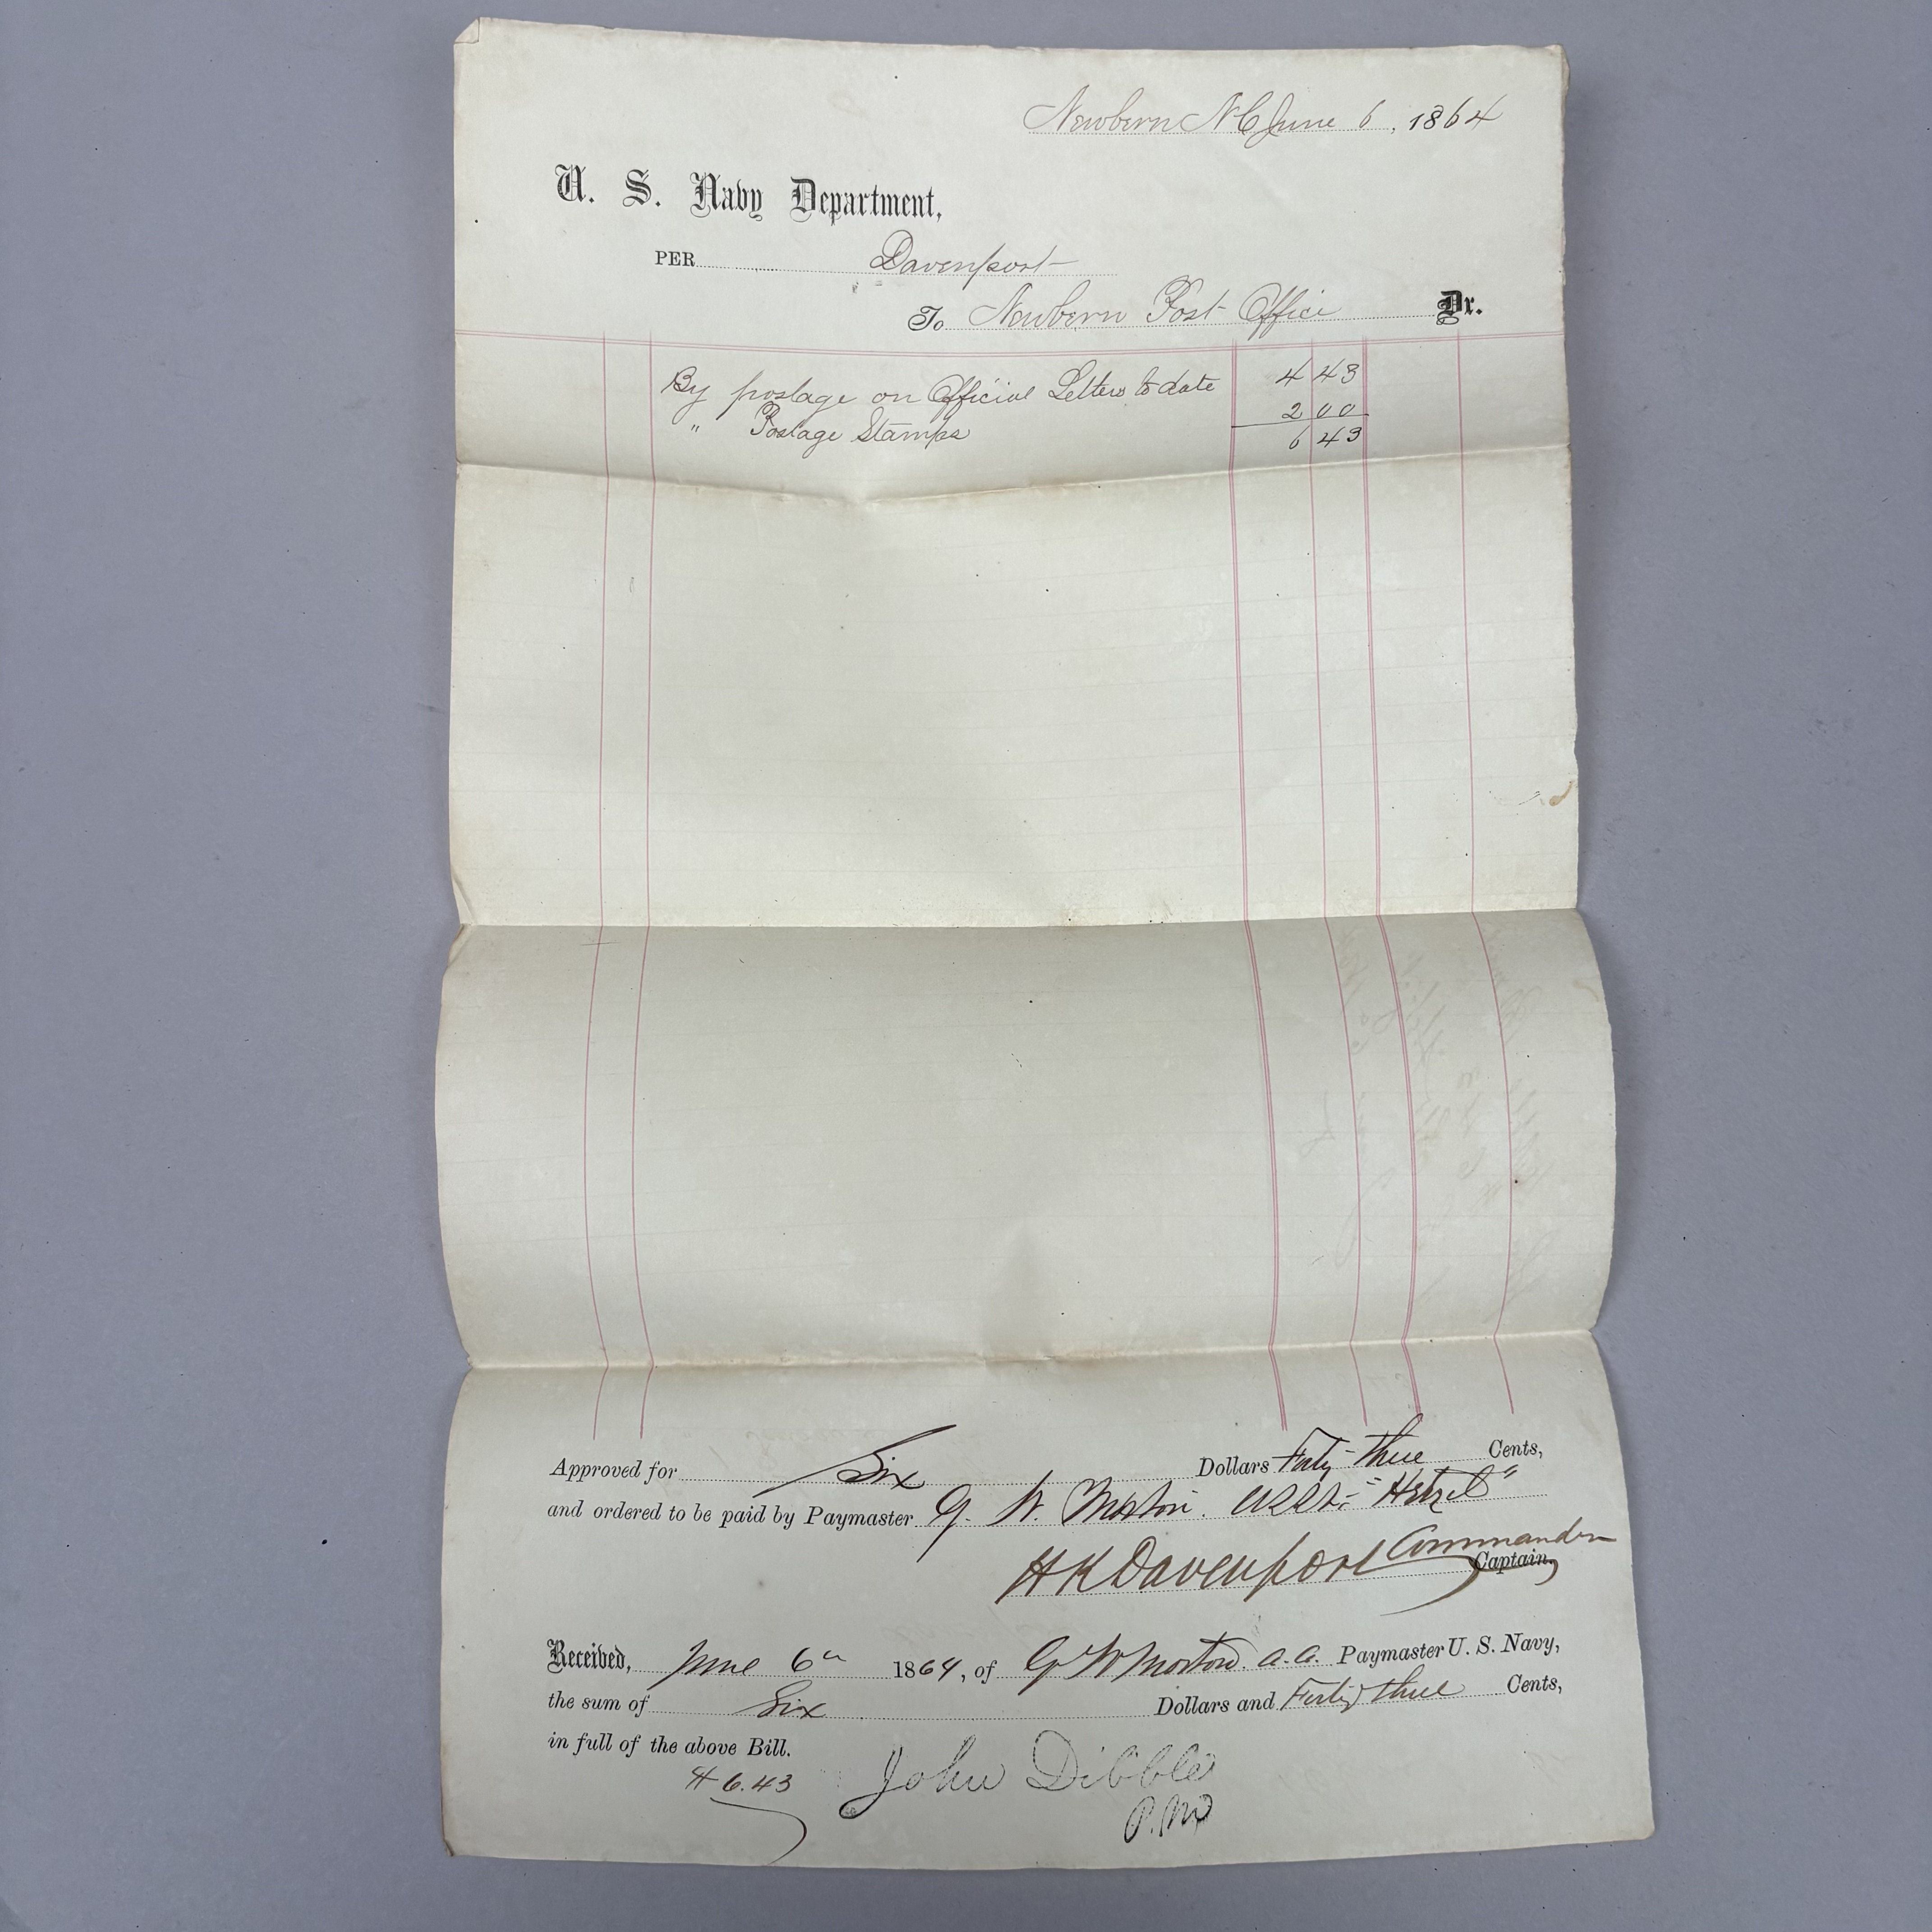 Newbern N.C June 6, 1864
U. S. Navy Department,
PER Davenport
To Newbern Post Office Dr.
By postage on Official Letters to date 4 43
" Postage Stamps 2 00
6 43
Approved for Six Dollars Forty three Cents,
and ordered to be paid by Paymaster G. W. Morton. USSt. "Hetzel"
H K Davenport Commander
Captain,
Received, June 6th 1864, of G W Morton. A.A. Paymaster U. S. Navy,
the sum of Six Dollars and Forty three Cents,
in full of the above Bill.
$ 6.43 John Dibble
P.M